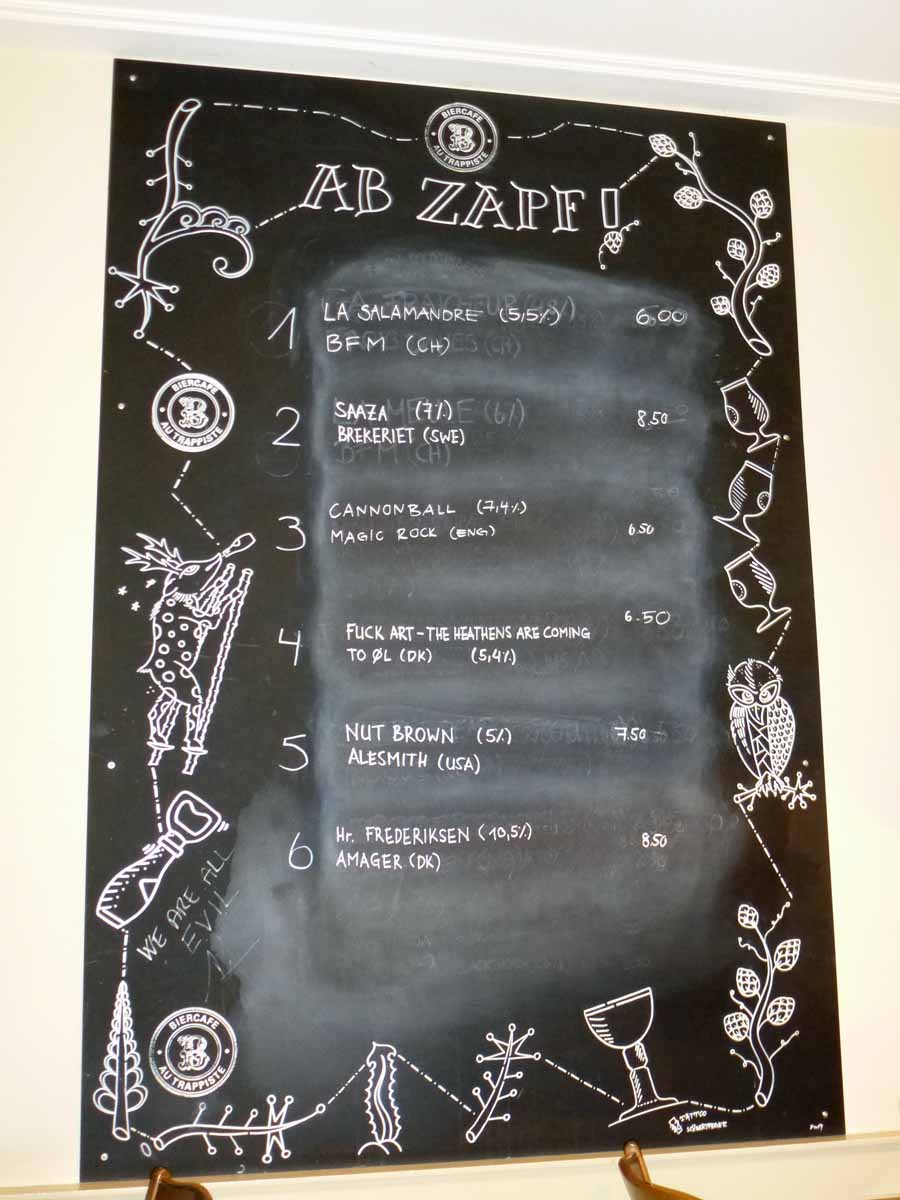 BIERCAFE
B
AU TRAPPISTE
AB ZAPF!
1 LA SALAMANDRE (5,5%) 6.00
BFM (CH)
2 SAAZA (7%) 8.50
BREKERIET (SWE)
BIERCAFE
B
AU TRAPPISTE
3 CANNONBALL (7,4%)
MAGIC ROCK (ENG) 6.50
6.50
4 FUCK ART - THE HEATHENS ARE COMING
TO ØL (DK) (5,4%)
5 NUT BROWN (5%) 7.50
ALESMITH (USA)
6 Hr. FREDERIKSEN (10,5%) 8.50
AMAGER (DK)
WE ARE ALL
EVIL
BIERCAFE
B
AU TRAPPISTE
TATTOO